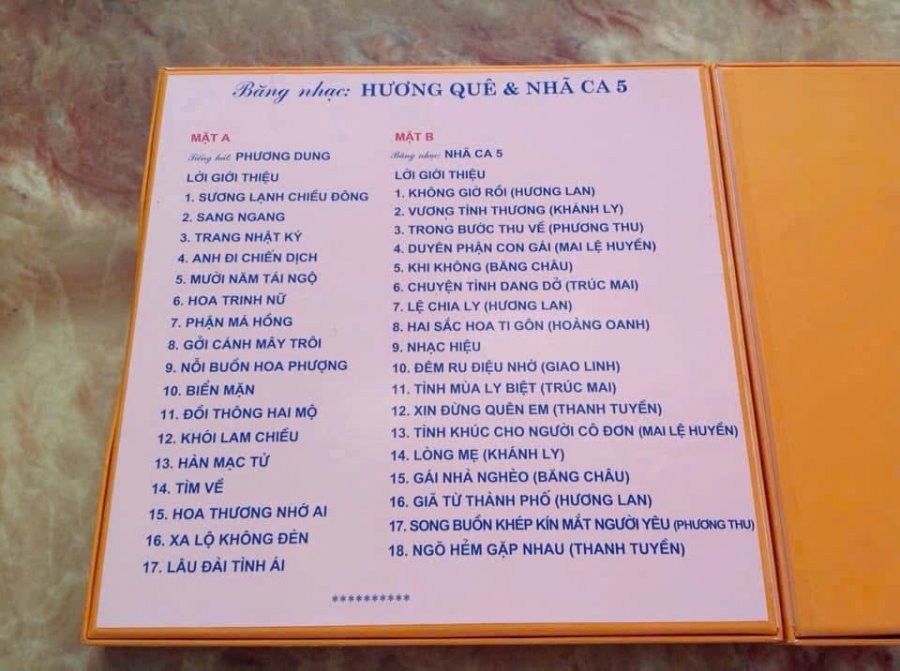 Băng nhạc: HƯƠNG QUÊ & NHÃ CA 5
MẶT A
Tiếng hát: PHƯƠNG DUNG
LỜI GIỚI THIỆU
1. SƯƠNG LẠNH CHIỀU ĐÔNG
2. SANG NGANG
3. TRANG NHẬT KÝ
4. ANH ĐI CHIẾN DỊCH
5. MƯỜI NĂM TÁI NGỘ
6. HOA TRINH NỮ
7. PHẬN MÁ HỒNG
8. GỞI CÁNH MÂY TRÔI
9. NỖI BUỒN HOA PHƯỢNG
10. BIỂN MẶN
11. ĐỒI THÔNG HAI MỘ
12. KHÓI LAM CHIỀU
13. HÀN MẠC TỬ
14. TÌM VỀ
15. HOA THƯƠNG NHỚ AI
16. XA LỘ KHÔNG ĐÈN
17. LÂU ĐÀI TÌNH ÁI
MẶT B
Băng nhạc: NHÃ CA 5
LỜI GIỚI THIỆU
1. KHÔNG GIỜ RỒI (HƯƠNG LAN)
2. VƯƠNG TÌNH THƯƠNG (KHÁNH LY)
3. TRONG BƯỚC THU VỀ (PHƯƠNG THU)
4. DUYÊN PHẬN CON GÁI (MAI LỆ HUYỀN)
5. KHI KHÔNG (BĂNG CHÂU)
6. CHUYỆN TÌNH DANG DỞ (TRÚC MAI)
7. LỆ CHIA LY (HƯƠNG LAN)
8. HAI SẮC HOA TI GÔN (HOÀNG OANH)
9. NHẠC HIỆU
10. ĐÊM RU ĐIỆU NHỚ (GIAO LINH)
11. TÌNH MÙA LY BIỆT (TRÚC MAI)
12. XIN ĐỪNG QUÊN EM (THANH TUYỀN)
13. TÌNH KHÚC CHO NGƯỜI CÔ ĐƠN (MAI LỆ HUYỀN)
14. LÒNG MẸ (KHÁNH LY)
15. GÁI NHÀ NGHÈO (BĂNG CHÂU)
16. GIÃ TỪ THÀNH PHỐ (HƯƠNG LAN)
17. SONG BUỒN KHÉP KÍN MẮT NGƯỜI YÊU (PHƯƠNG THU)
18. NGÕ HẺM GẶP NHAU (THANH TUYỀN)
**********